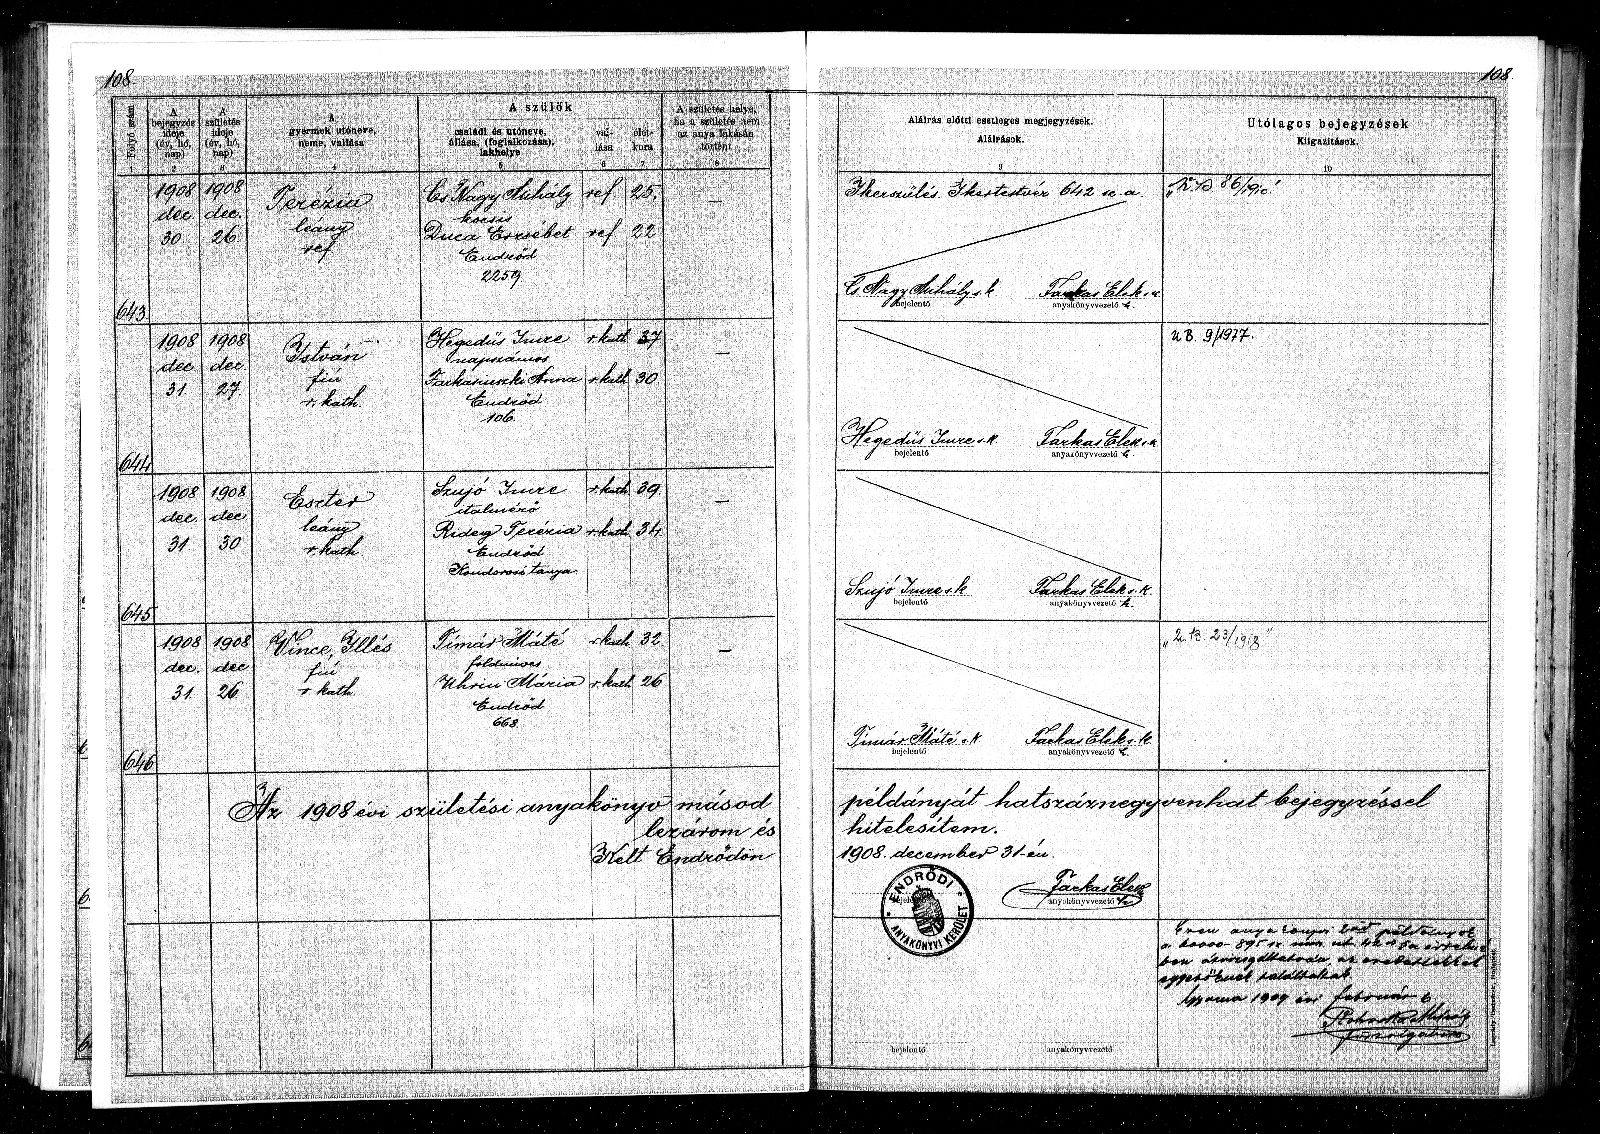 108.
108.
Folyó szám
A bejegyzés ideje (év, hó, nap)
A születés ideje (év, hó, nap)
A gyermek utóneve, neme, vallása
A szülők
családi és utóneve, állása, (foglalkozása), lakhelye
vallása
életkora
A születés helye, ha a születés nem az anya lakásán történt
Aláírás előtti esetleges megjegyzések.
Aláírások.
Utólagos bejegyzések
Kiigazítások.
1 2 3 4 5 6 7 8 9 10
643
1908 dec 30
1908 dec. 26
Terézia
leány
ref
Cs Nagy Mihály ref 25.
kocsis
Duca Erzsébet ref 22
Endrőd
2259
—
Ikerszülés. Ikertestvér 642 sz. a.
Cs Nagy Mihály s.k
bejelentő
Farkas Elek s.k
anyakönyvvezető h.
86/910
644
1908 dec 31
1908 dec. 27.
István
fiú
r. kath.
Hegedűs Imre r. kath 37
napszámos
Farkasinszki Anna r. kath 30
Endrőd
106.
—
Hegedűs Imre s.k.
bejelentő
Farkas Elek s.k
anyakönyvvezető h.
U B. 9/1977.
645
1908 dec. 31
1908 dec 30
Eszter
leány
r. kath
Szujó Imre r. kath 39
italmérő
Rideg Terézia r. kath 34
Endrőd
Kondorosi tanya
—
Szujó Imre s.k
bejelentő
Farkas Elek s. k.
anyakönyvvezető h.
646
1908 dec. 31.
1908 dec 26
Vince, Illés
fiú
r. kath.
Tímár Máté r. kath. 32
földmives
Uhrin Mária r. kath 26
Endrőd
668.
—
Tímár Máté s.k
bejelentő
Farkas Elek s. k.
anyakönyvvezető h.
23/918
Az 1908 évi születési anyakönyv másod példányát hatszáznegyvenhat bejegyzéssel
lezárom és hitelesítem.
Kelt Endrődön 1908. december 31-én.
bejelentő
Farkas Elek
anyakönyvvezető h.
ENDRŐDI
ANYAKÖNYVI KERÜLET
Ezen anyakönyvi másodpéldányok
találtattak
Gyoma 1909 évi február 6
bejelentő
anyakönyvvezető